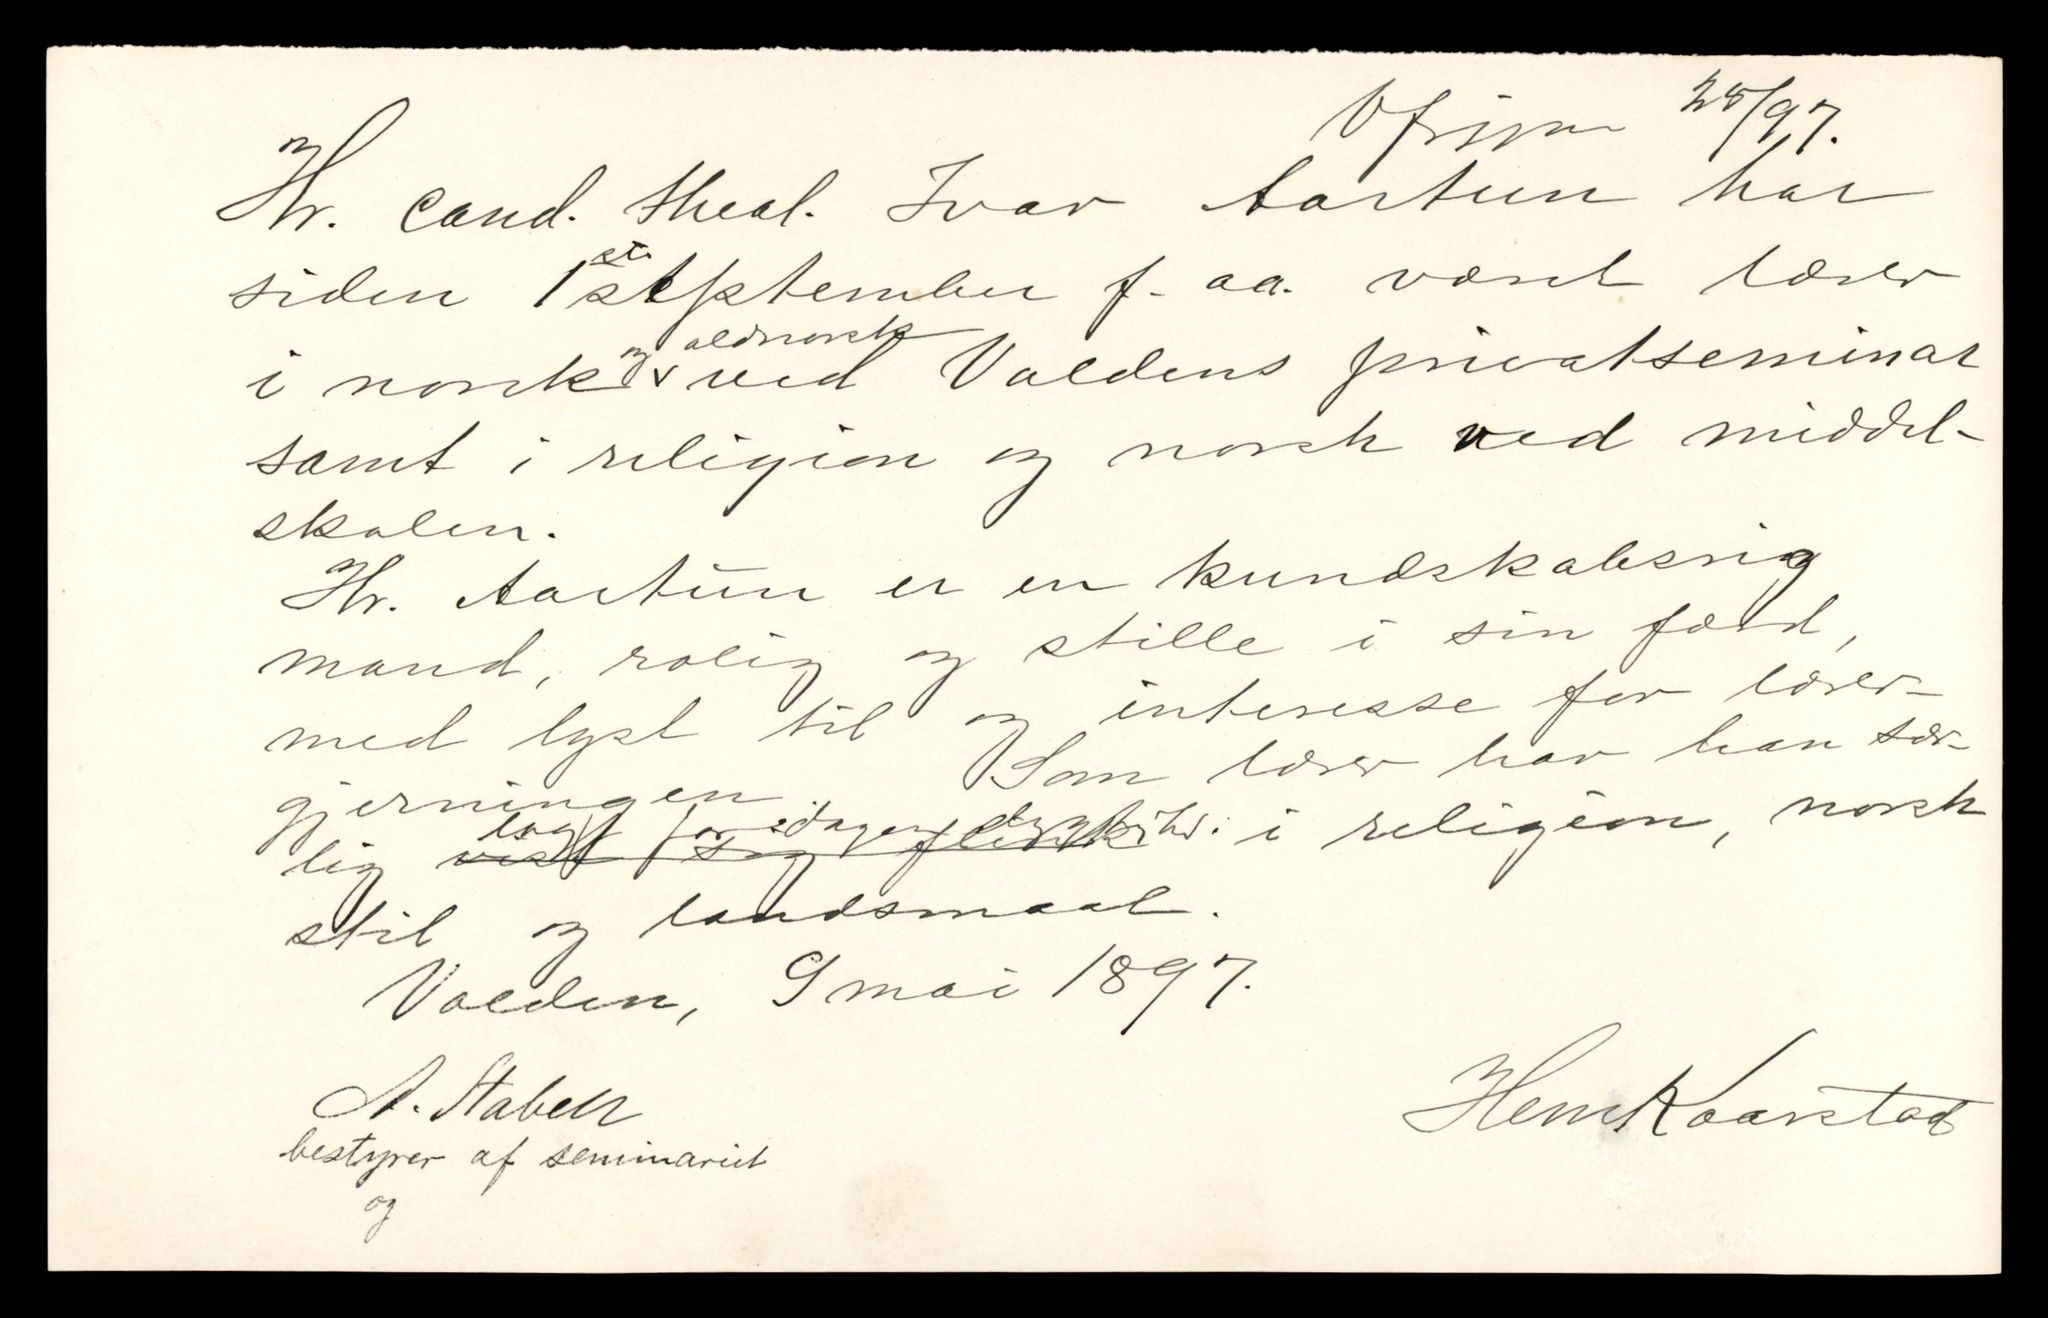 28/97.
Hr. Cand. theol. Ivar Aartun har
siden 1ste september f. aa. været lærer
i norsk og oldnorsk ved Voldens privatseminar
samt i religion og norsk ved middel-
skolen.
Hr. Aartun er en kundskabsrig
mand, rolig og stille i sin færd,
med lyst til og interesse for lærer-
gjerningen. Som lærer har han sær-
lig lagt for dagen i religion, norsk
stil og landsmaal.
Volden, 9 mai 1897.
A. Stabell Henr Kaarstad
bestyrer af seminariet
og